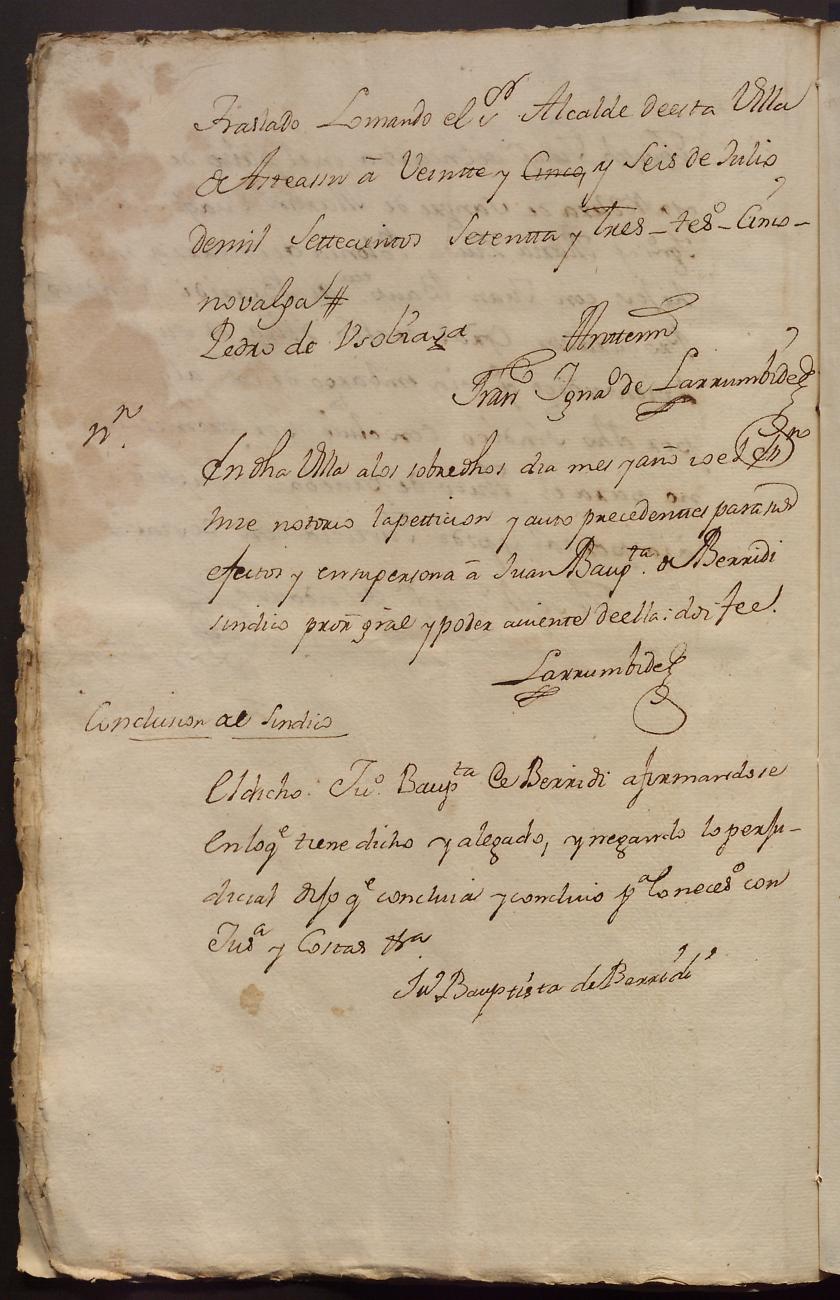 Traslado Lomando el Sr Alcalde deesta Villa
de Asteassu â Veintte y Cinco, y Seis de Julio
demil Settecientos Setentta y tres - tesdo - Cinco -
novalga #
Pedro de Usobiaga Anttemi
Franco Ignao de Larrumbide
nn.
En dha Villa alos sobredhos dia mes y año io el Essno
hize notorio lapetticion y auto precedenttes para sus
efectos y ensupersona â Juan Baupta. de Berridi
sindico pror gral y poder aviente deella: doi fee.
Larrumbide
Conclusion al Sindico
El dicho Juo. Baupta de Berridi afirmandose
Enloqe tiene dicho y alegado, y negando lo perju-
dicial dijo qe concluia y concluio pa lo neceso con
Jusa y Costas
Juo Bauptista de Berridi